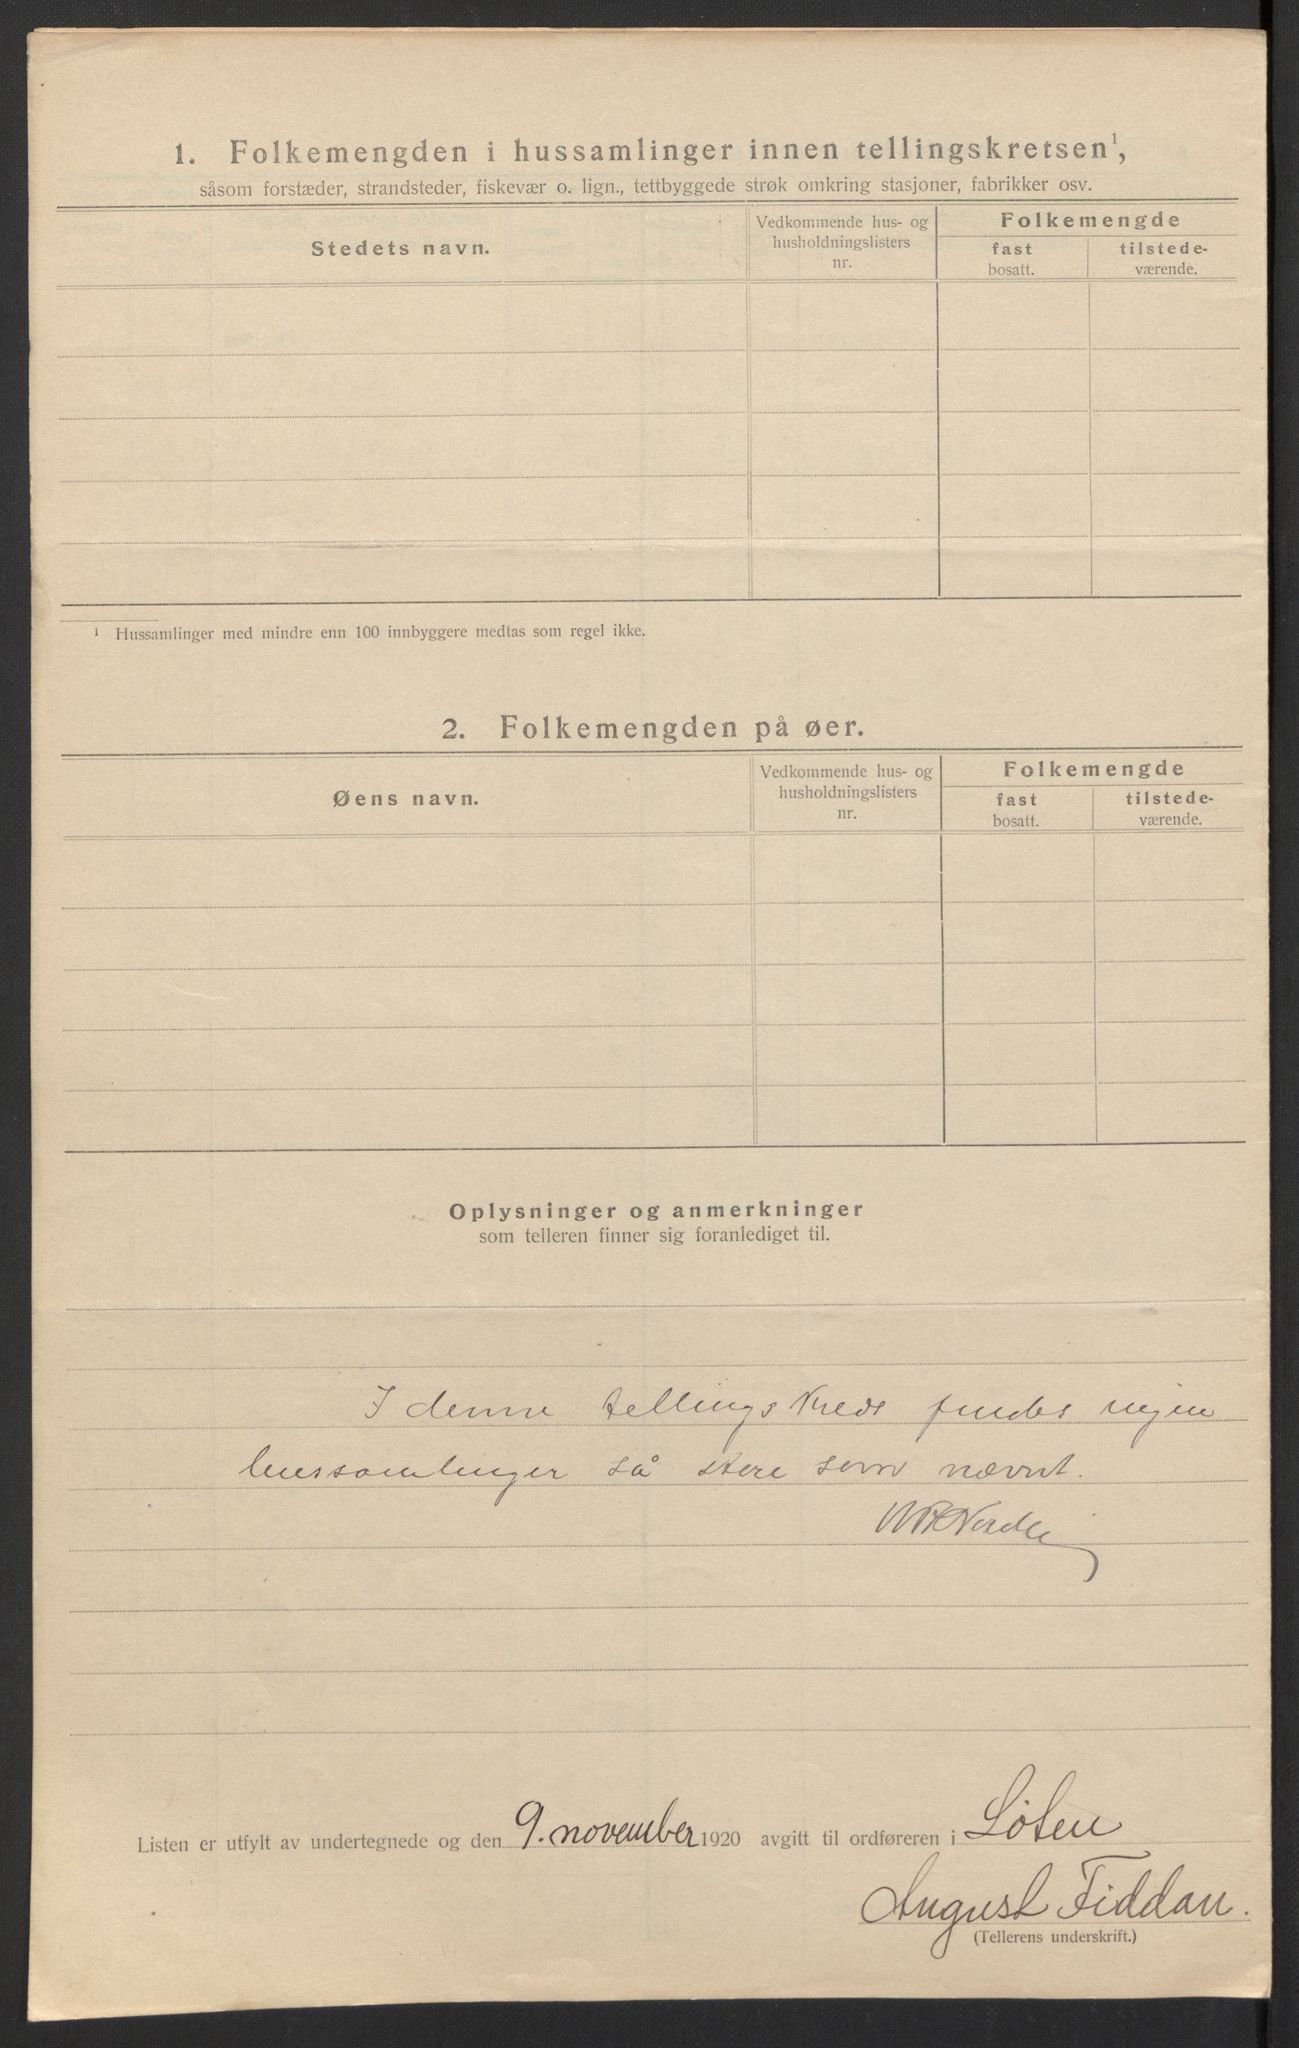 1. Folkemengden i hussamlinger innen tellingskretsen¹,
såsom forstæder, strandsteder, fiskevær o. lign., tettbyggede strøk omkring stasjoner, fabrikker osv.
Stedets navn.
Vedkommende hus- og
husholdningslisters
nr.
Folkemengde
fast
bosatt.
tilstede-
værende.
¹ Hussamlinger med mindre enn 100 innbyggere medtas som regel ikke.
2. Folkemengden på øer.
Øens navn.
Vedkommende hus- og
husholdningslisters
nr.
Folkemengde
fast
bosatt.
tilstede-
værende.
Oplysninger og anmerkninger
som telleren finner sig foranlediget til.
I denne tellingskreds findes ingen
hussamlinger så store som nævnt.
Nordli
Listen er utfylt av undertegnede og den 9. november 1920 avgitt til ordføreren i Løten
August Fiddan.
(Tellerens underskrift.)